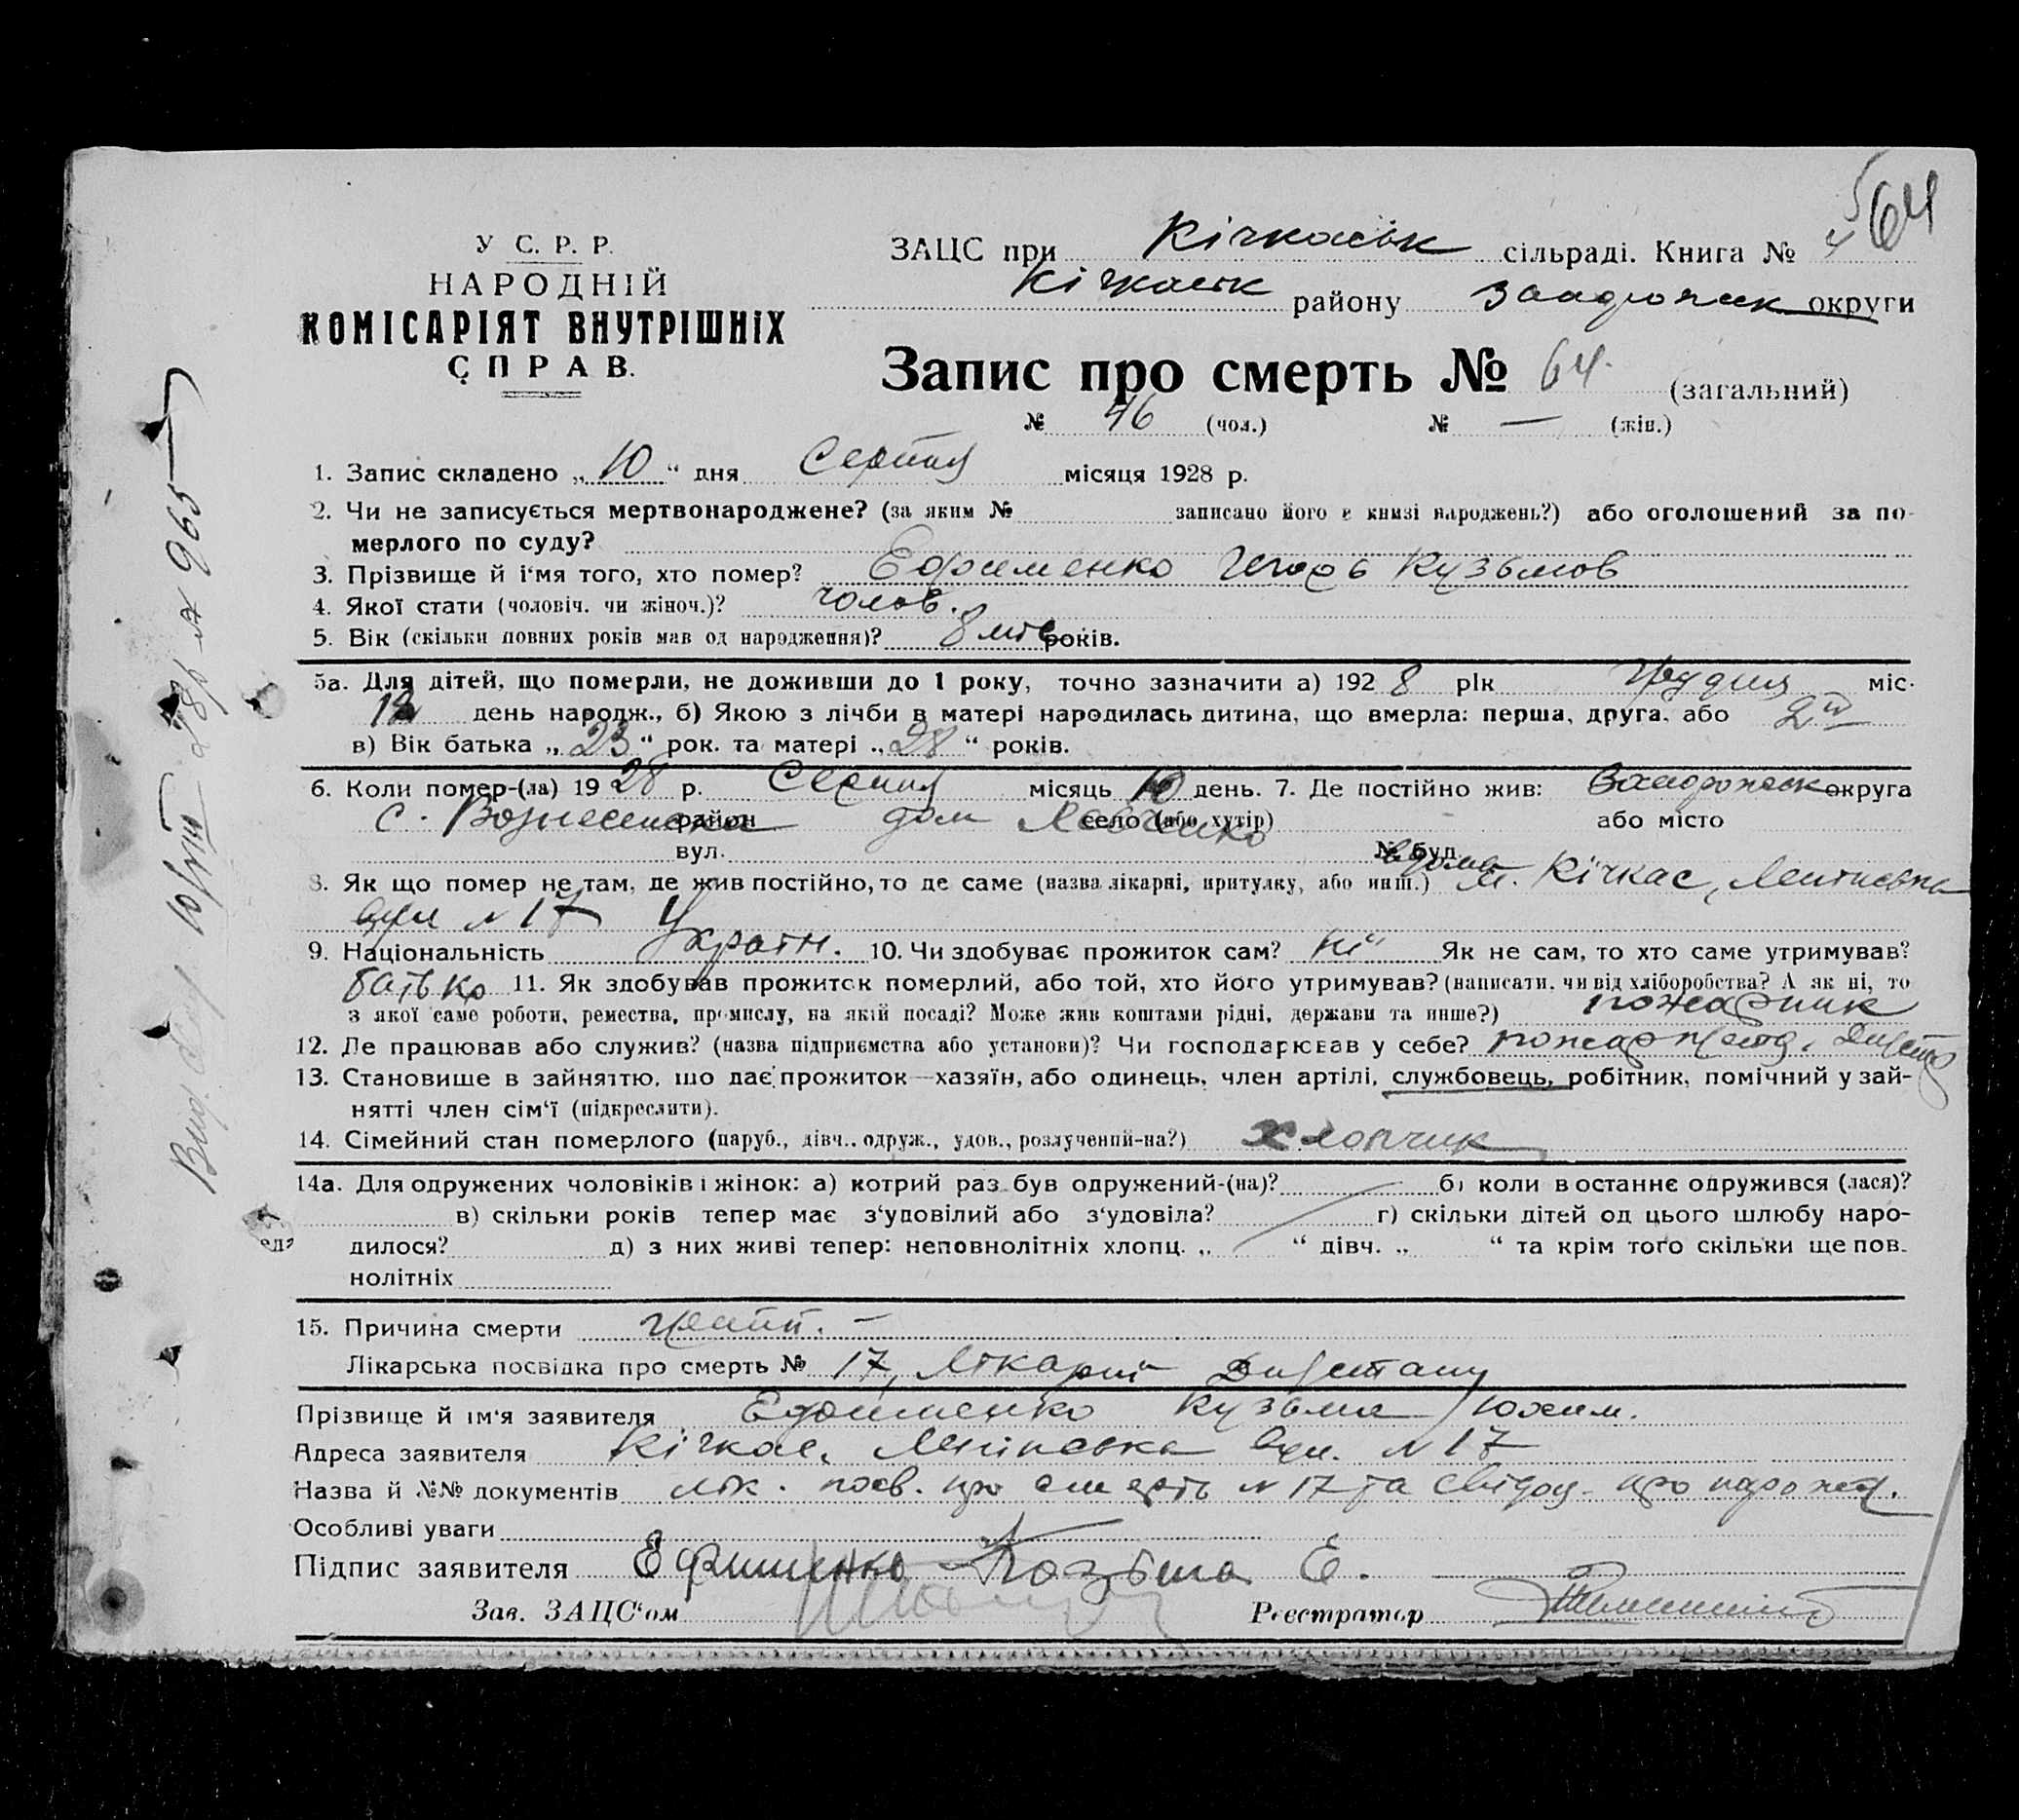 564
У С. Р. Р.
НАРОДНІЙ
КОМІСАРІЯТ ВНУТРІШНІХ
СПРАВ.
ЗАЦС при Кічкаськ сільраді. Книга №
Кічкаськ району округи
Запис про смерть № 64. (загальний)
№ 46 (чол.) № — (жін.)
1. Запис складено „10“ дня Серпня місяця 1928 р.
2. Чи не записується мертвонароджене? (за яким № записано його в книзі народжень?) або оголошений за по-
мерлого по суду?
3. Прізвище й і'мя того, хто помер? Ефименко Игорь Кузьмов
4. Якої стати (чоловіч. чи жіноч.)? чолов.
5. Вік (скільки повних років мав од народження)? 8 міс років.
5а. Для дітей, що померли, не доживши до 1 року, точно зазначити а) 1928 рік Грудня міс.
12 день народж., б) Якою з лічби в матері народилась дитина, що вмерла: перша, друга, або
в) Вік батька „23“ рок. та матері „28“ років.
6. Коли помер-(ла) 1928 р. Серпня місяць 10 день. 7. Де постійно жив: округа
с. Вознесенка район дом Левченко село (або хутір) або місто
вул. № буд.
8. Як що помер не там, де жив постійно, то де саме (назва лікарні, притулку, або инш.) вдома м. Кічкас,
вул № 17
9. Національність Україн. 10. Чи здобуває прожиток сам? ні Як не сам, то хто саме утримував?
батько 11. Як здобував прожиток померлий, або той, хто його утримував? (написати, чи від хліборобства? А як ні, то
з якої саме роботи, ремества, промислу, на якій посаді? Може жив коштами рідні, держави та инше?) пожарник
12. Де працював або служив? (назва підприємства або установи)? Чи господарював у себе?
13. Становище в зайняттю, що дає прожиток—хазяїн, або одинець, член артілі, службовець, робітник, помічний у зай-
нятті член сім'ї (підкреслити).
14. Сімейний стан померлого (паруб., дівч., одруж., удов., розлучений-на?) хлопчик
14а. Для одружених чоловіків і жінок: а) котрий раз був одружений-(на)? б) коли в останнє одружився (лася)?
в) скільки років тепер має з'удовілий або з'удовіла? г) скільки дітей од цього шлюбу наро-
дилося? д) з них живі тепер: неповнолітніх хлопц. „ “ дівч. „ “ та крім того скільки ще пов-
нолітніх
15. Причина смерти
Лікарська посвідка про смерть № 17, Лікарні Дніпрстану
Прізвище й ім'я заявителя Ефименко Кузьма Юхим.
Адреса заявителя Кічкас, вул. № 17
Назва й №№ документів лік. посв. про смерть № 17 та свідоц. про народж.
Особливі уваги
Підпис заявителя Ефименко Козьма Е.
Зав. ЗАЦС'ом Реєстратор